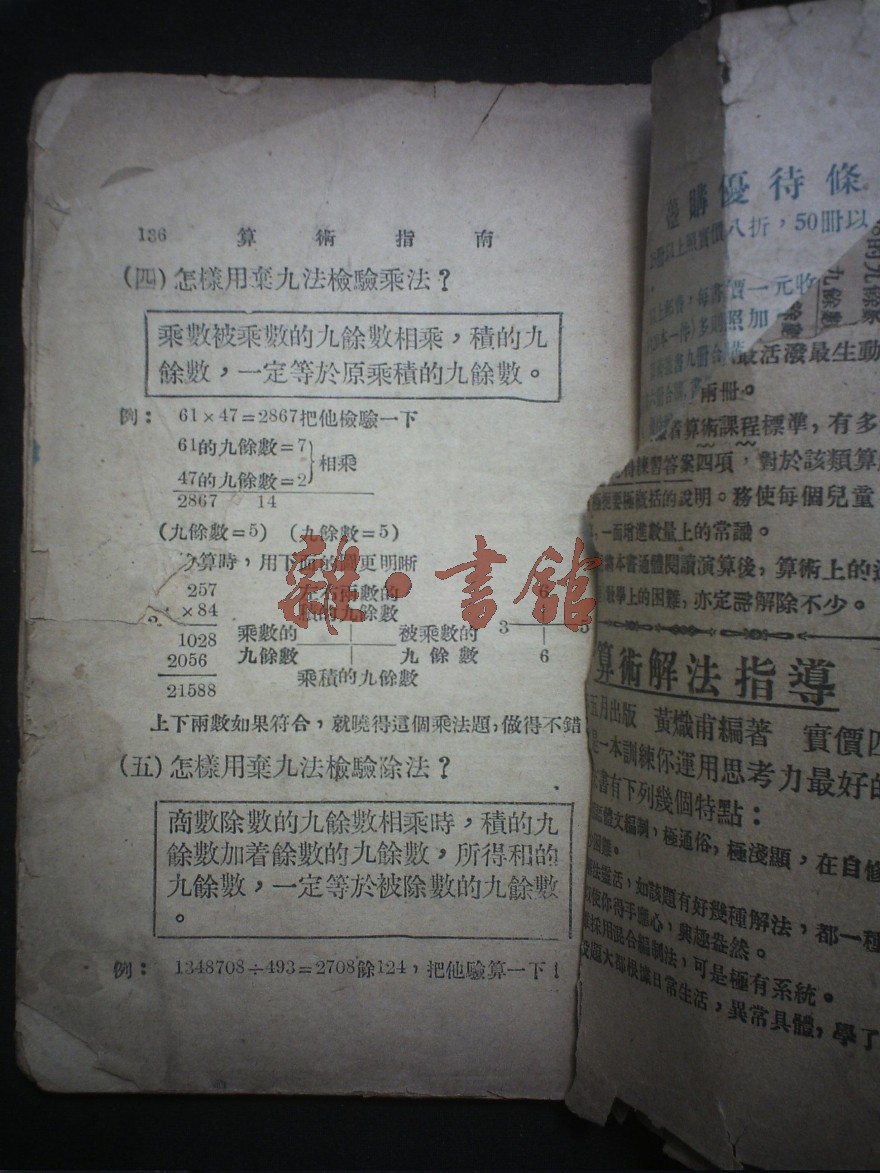 136 算術指南
(四)怎樣用棄九法檢驗乘法?
乘數被乘數的九餘數相乘,積的九
餘數,一定等於原乘積的九餘數。
例: 61×47=2867把他檢驗一下
61的九餘數=7
相乘
47的九餘數=2
2867 14
(九餘數=5) (九餘數=5)
算時,用下面的圖更明晰
257
×84
1028
2056
21588
左右兩數的
的九餘數
乘數的
九餘數
被乘數的
九餘數
乘積的九餘數
6
3 5
6
上下兩數如果符合,就曉得這個乘法題,做得不錯
(五)怎樣用棄九法檢驗除法?
商數除數的九餘數相乘時,積的九
餘數加着餘數的九餘數,所得和的
九餘數,一定等於被除數的九餘數
。
例: 1348708÷493=2708餘124,把他驗算一下!
雜·書館
購優待條
以上照實價八折,50冊以
每書價一元收
照加
九餘數
最活潑最生動
兩冊。
算術課程標準,有多
練習答案四項,對於該類算
極概括的說明。務使每個兒童
一面增進數量上的常識。
本書通體閱讀演算後,算術上的
教學上的困難,亦定能解除不少。
算術解法指導
五月出版 黃熾甫編著 實價四
是一本訓練你運用思考力最好的
書有下列幾個特點:
語體文編制,極通俗,極淺顯,在自修
困難。
法靈活,如該題有好幾種解法,都一種
使你得手應心,興趣盎然。
採用混合編制法,可是極有系統。
題大都根據日常生活,異常具體,學了